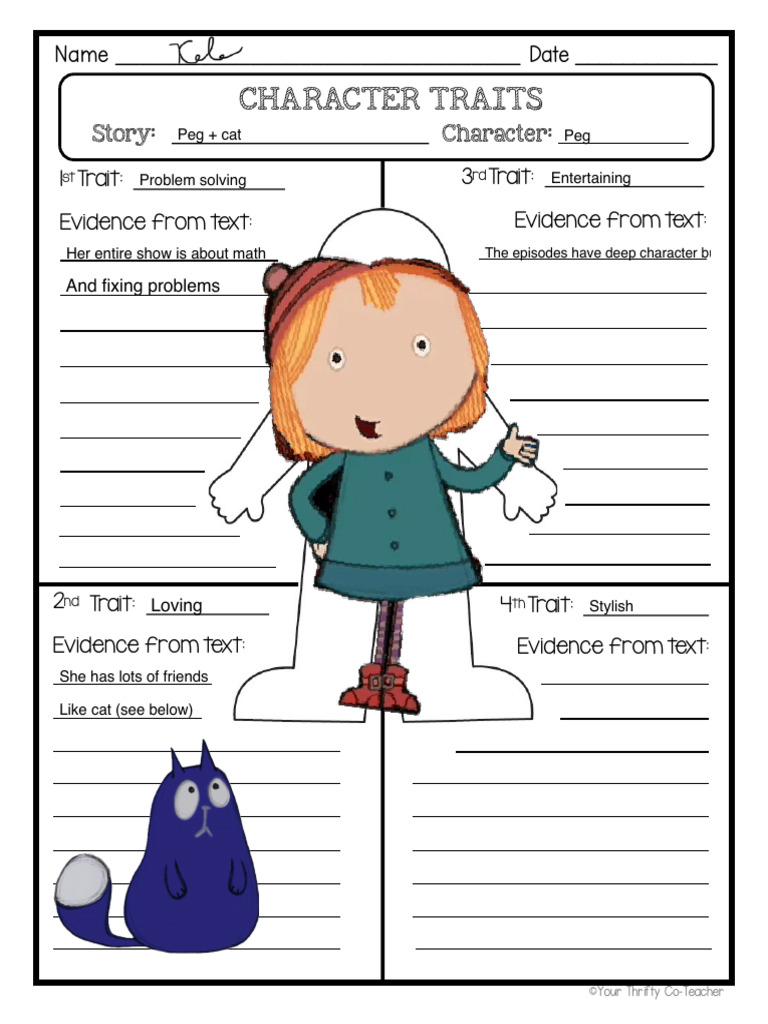 Name Kele Date
CHARACTER TRAITS
Story: Peg + cat Character: Peg
1st Trait: Problem solving
Evidence from text:
Her entire show is about math
And fixing problems
3rd Trait: Entertaining
Evidence from text:
The episodes have deep character
2nd Trait: Loving
Evidence from text:
She has lots of friends
Like cat (see below)
4th Trait: Stylish
Evidence from text:
©Your Thrifty Co-Teacher